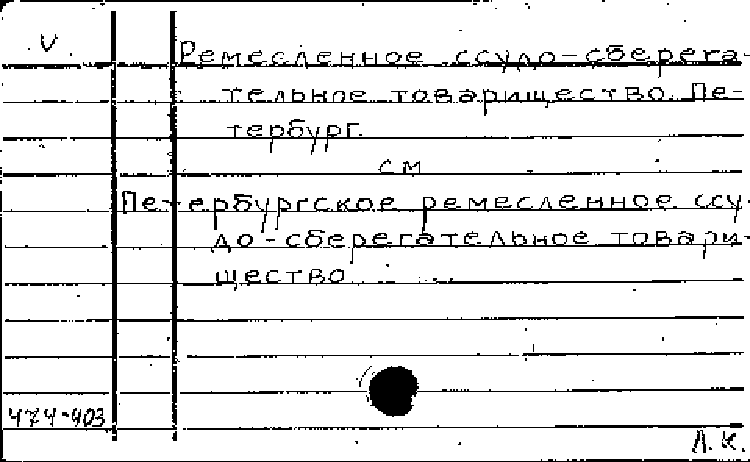 V
Ремесленное ссудо-сберега-
тельное товарищество. Пе-
тербург.
см
Петербургское ремесленное ссу-
до-сберегательное товари-
щество
474-403
Л. К.